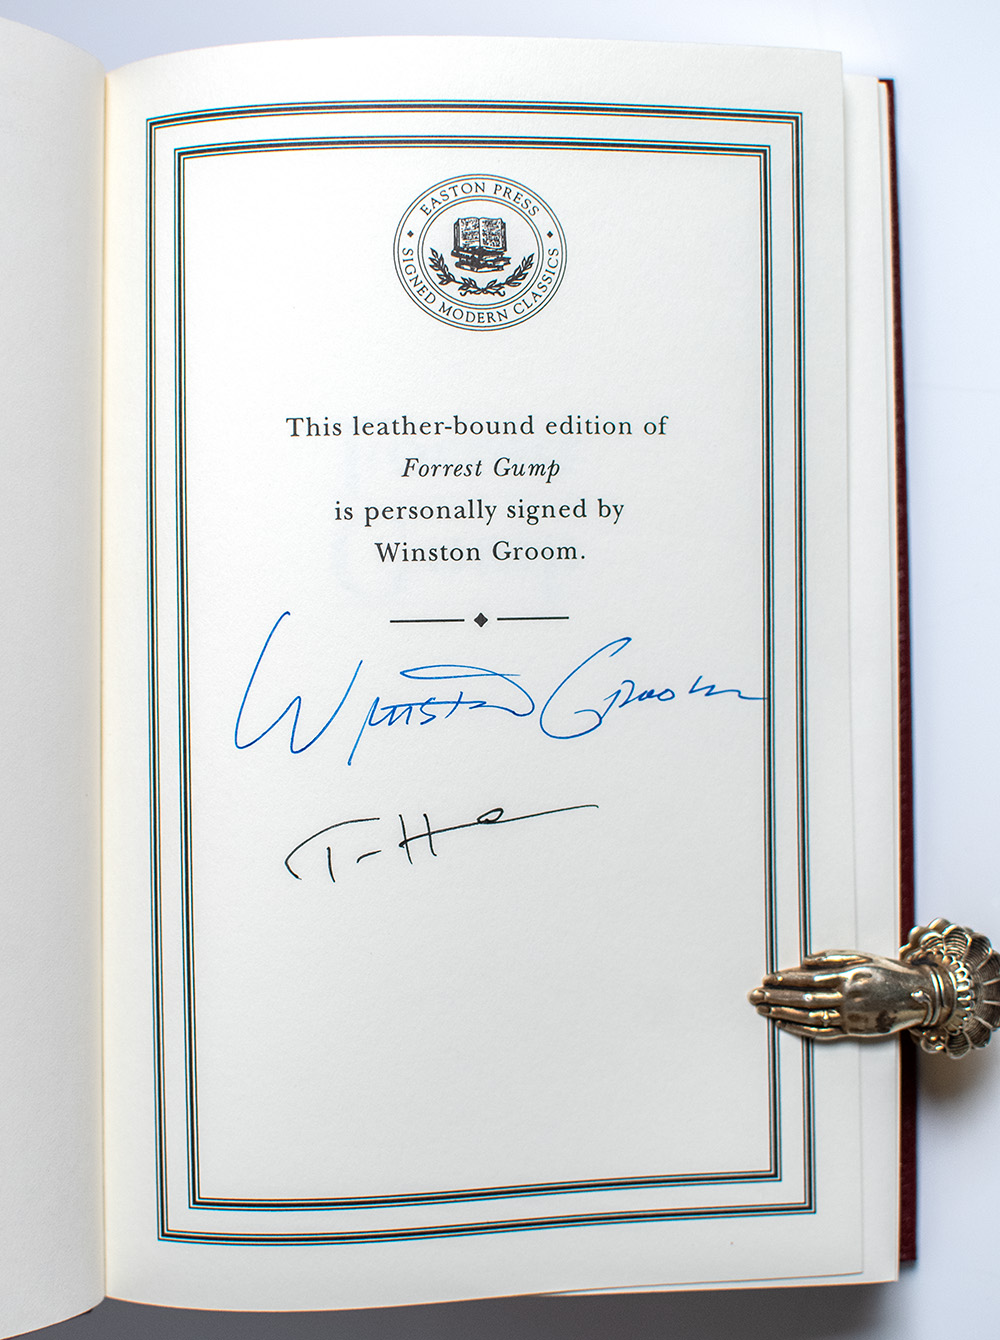 EASTON PRESS
SIGNED MODERN CLASSICS
This leather-bound edition of
Forrest Gump
is personally signed by
Winston Groom.
Winston Groom